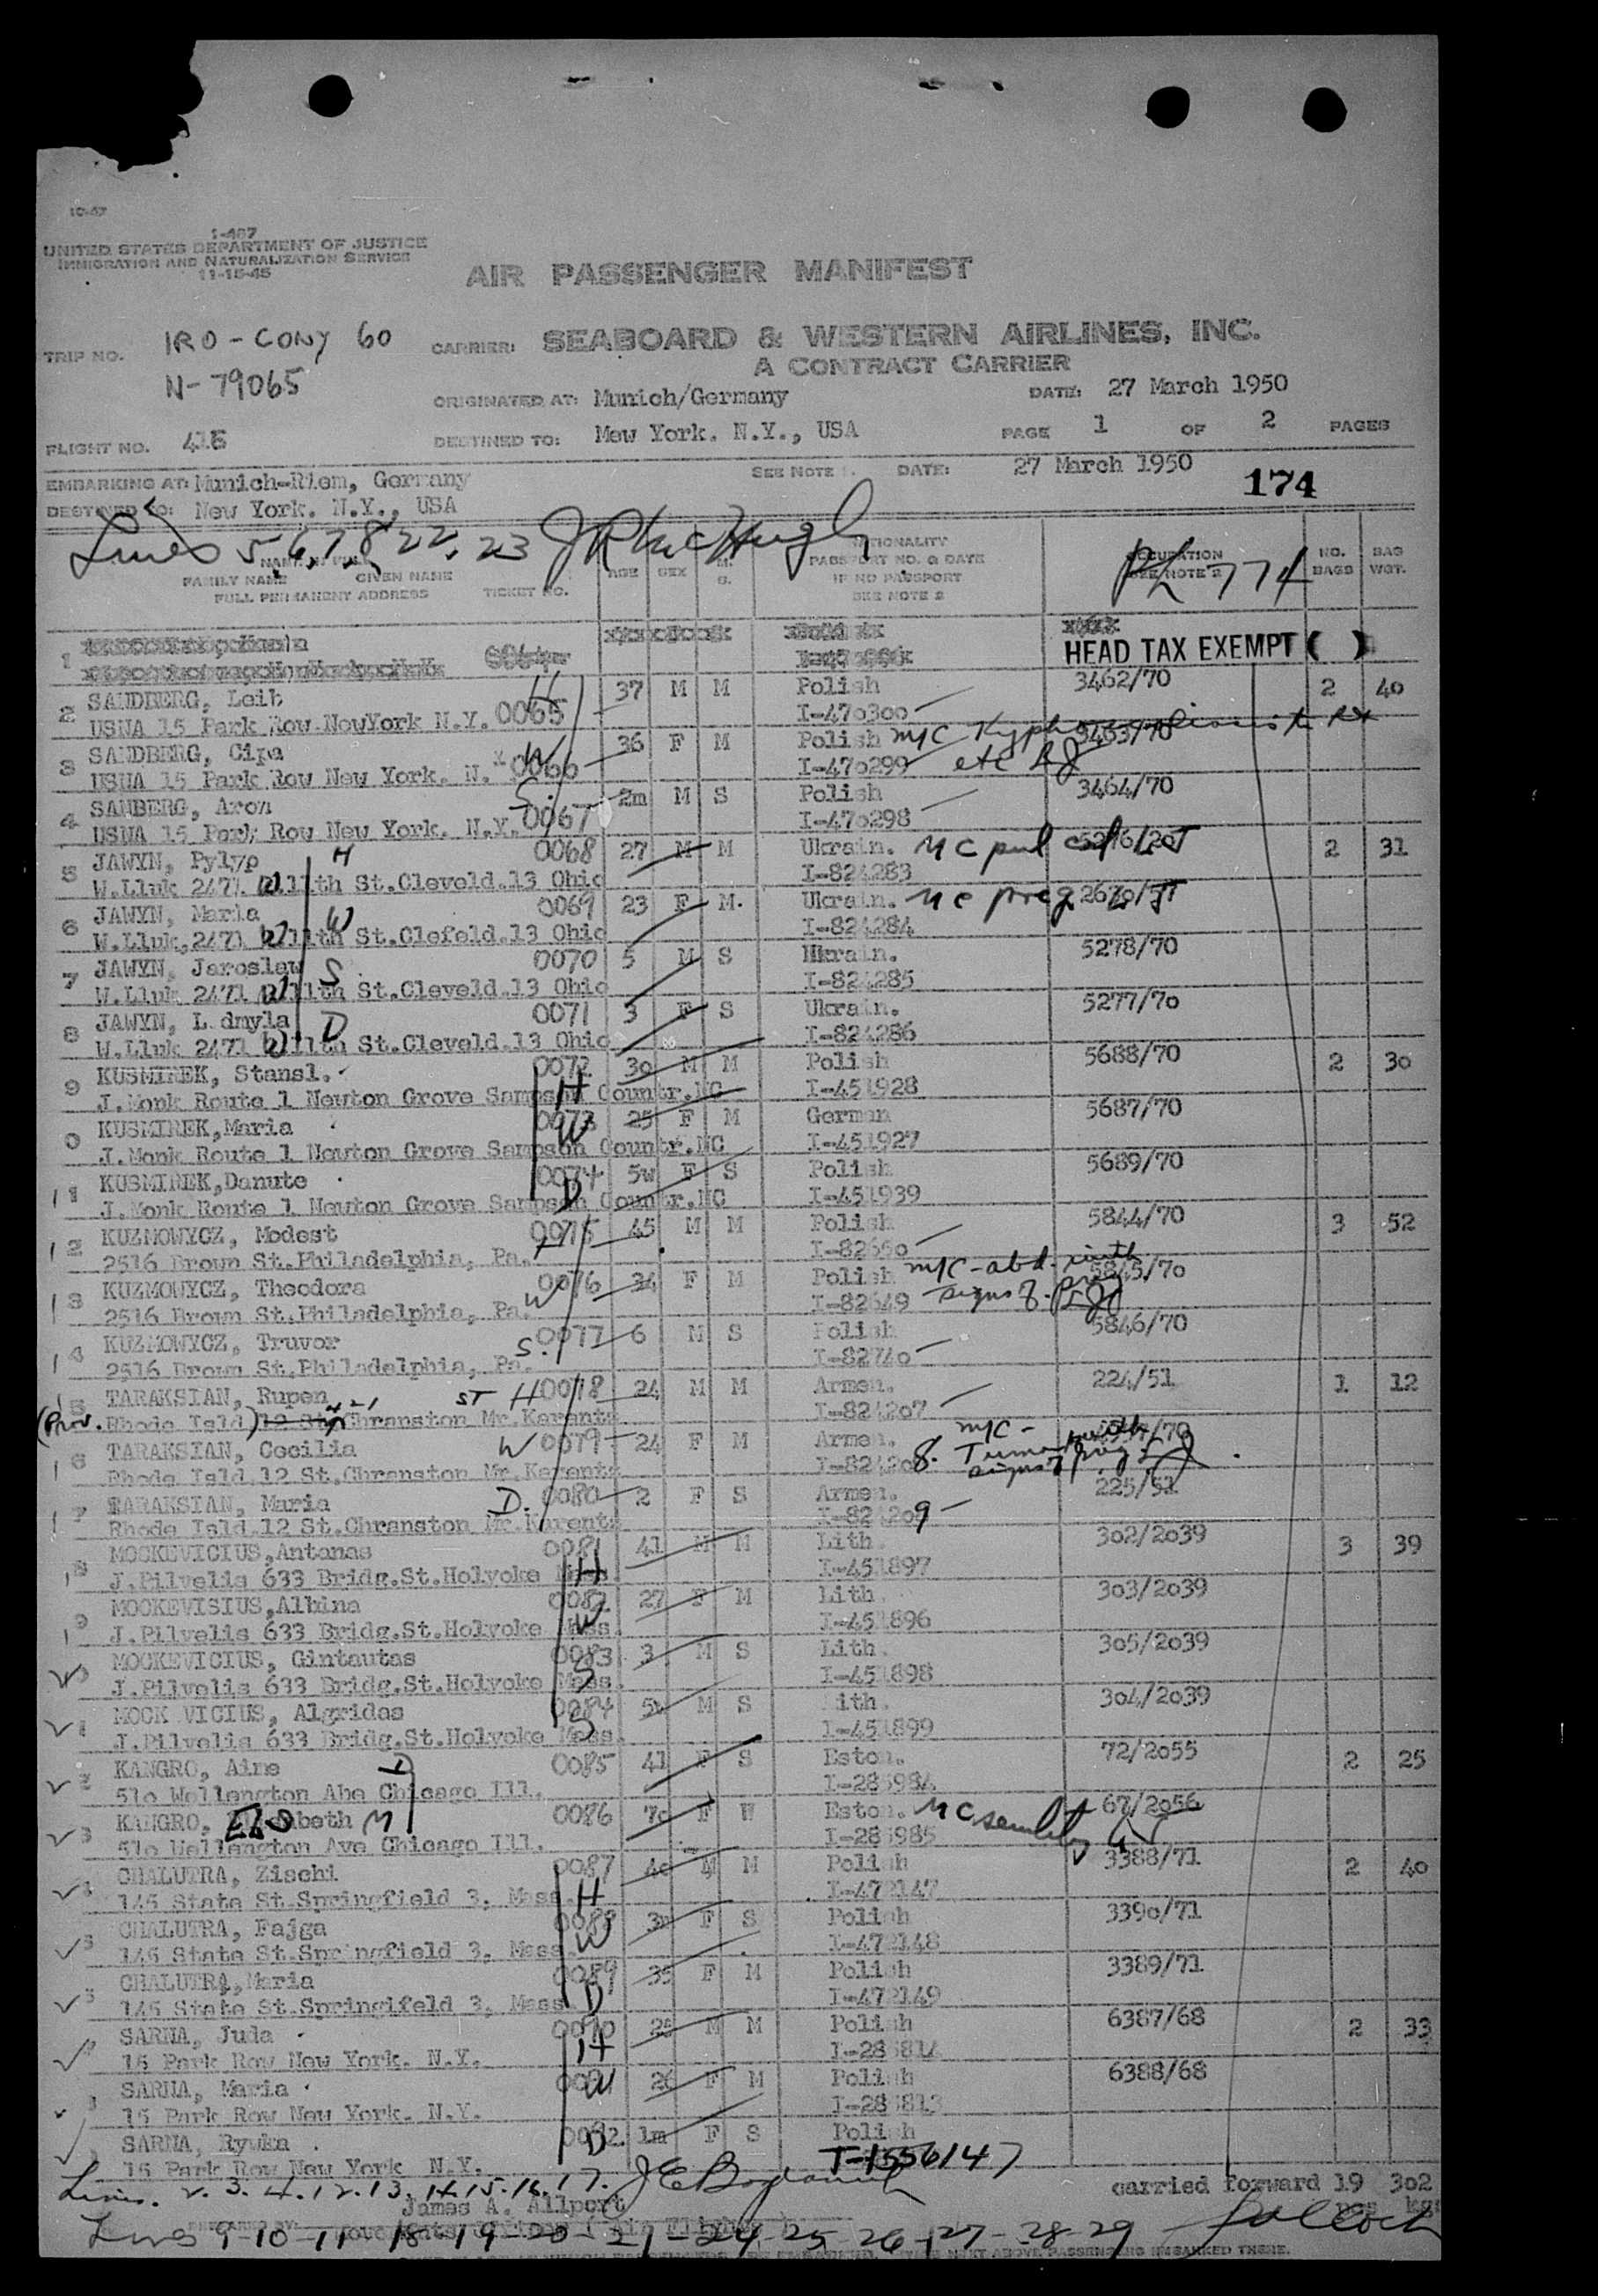 10-47
I-487
UNITED STATES DEPARTMENT OF JUSTICE
IMMIGRATION AND NATURALIZATION SERVICE
11-15-45
AIR PASSENGER MANIFEST
TRIP NO. IRO - CONY 60
N-79065
CARRIER: SEABOARD & WESTERN AIRLINES, INC.
A CONTRACT CARRIER
ORIGINATED AT: Munich/Germany DATE: 27 March 1950
FLIGHT NO. 416 DESTINED TO: New York. N.Y., USA PAGE 1 OF 2 PAGES
EMBARKING AT: Munich-Riem, Germany SEE NOTE 1. DATE: 27 March 1950
DESTINED TO: New York. N.Y., USA 174
Lines 5, 6, 7, 8, 22, 23
FAMILY NAME GIVEN NAME
FULL PERMANENT ADDRESS TICKET NO.
AGE SEX M. S.
NATIONALITY PASSPORT NO. & DATE IF NO PASSPORT SEE NOTE 2
OCCUPATION SEE NOTE 2 NO. BAGS BAG WGT.
774
1 HEAD TAX EXEMPT ( )
2 SANDBERG, Leib H 37 M M Polish 3462/70 2 40
USNA 15 Park Row.NewYork N.Y. 0065 I-470300
3 SANDBERG, Cipa W 36 F M Polish m/c 3463/70
USNA 15 Park Row New York. N. 0066 I-470299 etc
4 SANBERG, Aron S. 2m M S Polish 3464/70
USNA 15 Park Row New York. N.Y. 0067 I-470298
5 JAWYN, Pylyp H 0068 27 M M Ukrain. MC 2 31
W.Lluk 2471 W.11th St.Cleveld.13 Ohio I-824283
6 JAWYN, Maria W 0069 23 F M. Ukrain. MC preg.
W.Lluk,2471 W.11th St.Clefeld.13 Ohio I-824284
7 JAWYN, Jaroslaw S 0070 5 M S Ukrain. 5278/70
W.Lluk 2471 W.11th St.Cleveld.13 Ohio I-824285
8 JAWYN, L dmyla D 0071 3 F S Ukrain. 5277/70
W.Lluk 2471 W.11th St.Cleveld.13 Ohio I-824286
9 KUSMIREK, Stansl. 0072 30 M M Polish 5688/70 2 30
J.Monk Route 1 Newton Grove Sampson Countr.NC H I-451928
0 KUSMIREK,Maria 0073 25 F M German 5687/70
J.Monk Route 1 Newton Grove Sampson Countr.NC W I-451927
11 KUSMIREK,Danute 0074 5w F S Polish 5689/70
J.Monk Route 1 Newton Grove Sampson Countr.NC D I-451939
12 KUZMOWYCZ, Modest 0075 45 M M Polish 5844/70 3 52
2516 Brown St.Philadelphia, Pa. I-82650
13 KUZMOWYCZ, Theodora 0076 34 F M Polish m/c - abd. with 5845/70
2516 Brown St.Philadelphia, Pa. W I-82649 signs of
14 KUZMOWYCZ, Truvor 0077 6 M S Polish 5846/70
2516 Brown St.Philadelphia, Pa. S. I-82740
15 TARAKSIAN, Rupen ST H 0078 24 M M Armen. 224/51 1 12
(Prov. Rhode Isld) Chranston Mr.Karentz I-824207
16 TARAKSIAN, Cecilia W 0079 24 F M Armen. m/c -
Rhode Isld.12 St.Chranston Mr.Karentz I-824208.
17 TARAKSIAN, Maria D. 0080 2 F S Armen. 225/51
Rhode Isld.12 St.Chranston Mr.Karentz I-824209
18 MOCKEVICIUS,Antanas 0081 41 M M Lith. 302/2039 3 39
J.Pilvelis 633 Bridg.St.Holyoke Mass. H I-451897
19 MOCKEVISIUS,Albina 0082 27 F M Lith. 303/2039
J.Pilvelis 633 Bridg.St.Holyoke Mass. W I-451896
MOCKEVICIUS, Gintautas 0083 3 M S Lith. 305/2039
J.Pilvelis 633 Bridg.St.Holyoke Mass. S I-451898
MOCK VICIUS, Algridas 0084 M S ith. 304/2039
J.Pilvelis 633 Bridg.St.Holyoke Mass. S I-451899
KANGRO, Aine D 0085 41 F S Eston. 72/2055 2 25
510 Wellengton Abe Chicago Ill.
KANGRO, Elisabeth M 0086 70 F W Eston. MC senility 67/2056
510 Wellengton Ave Chicago Ill.
CHALUTRA, Zischi 0087 40 M M Polish 3388/71 2 40
145 State St.Springfield 3, Mass. H I-472147
CHALUTRA, Fajga 0088 F S Polish 3390/71
145 State St.Springfield 3, Mass. W I-472148
CHALUTRA,Maria 0089 35 F M Polish 3389/71
145 State St.Springifeld 3, Mass D I-472149
SARNA, Jula 0090 25 M M Polish 6387/68 2 33
15 Park Row New York. N.Y. H
SARNA, Maria 0091 26 F M Polish 6388/68
15 Park Row New York. N.Y.
SARNA, Rywka 0092 1m F S Polish
15 Park Row New York N.Y. T-1556147
Lines. 2. 3. 4. 12. 13. 14. 15. 16. 17. carried forward 19 302
James A. Allport pcs kgs
PREPARED BY:
Lines 9-10-11-18-19-20-21-24-25-26-27-28-29